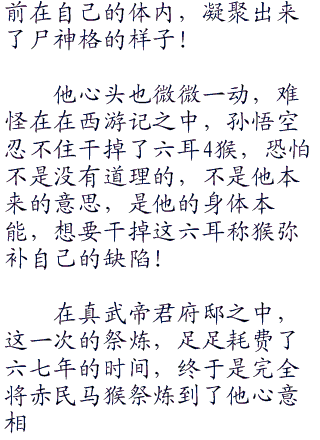 前在自己的体内，凝聚出来
了尸神格的样子！
他心头也微微一动，难
怪在在西游记之中，孙悟空
忍不住干掉了六耳4猴，恐怕
不是没有道理的，不是他本
来的意思，是他的身体本
能，想要干掉这六耳称猴弥
补自己的缺陷！
在真武帝君府邸之中，
这一次的祭炼，足足耗费了
六七年的时间，终于是完全
将赤民马猴祭炼到了他心意
相